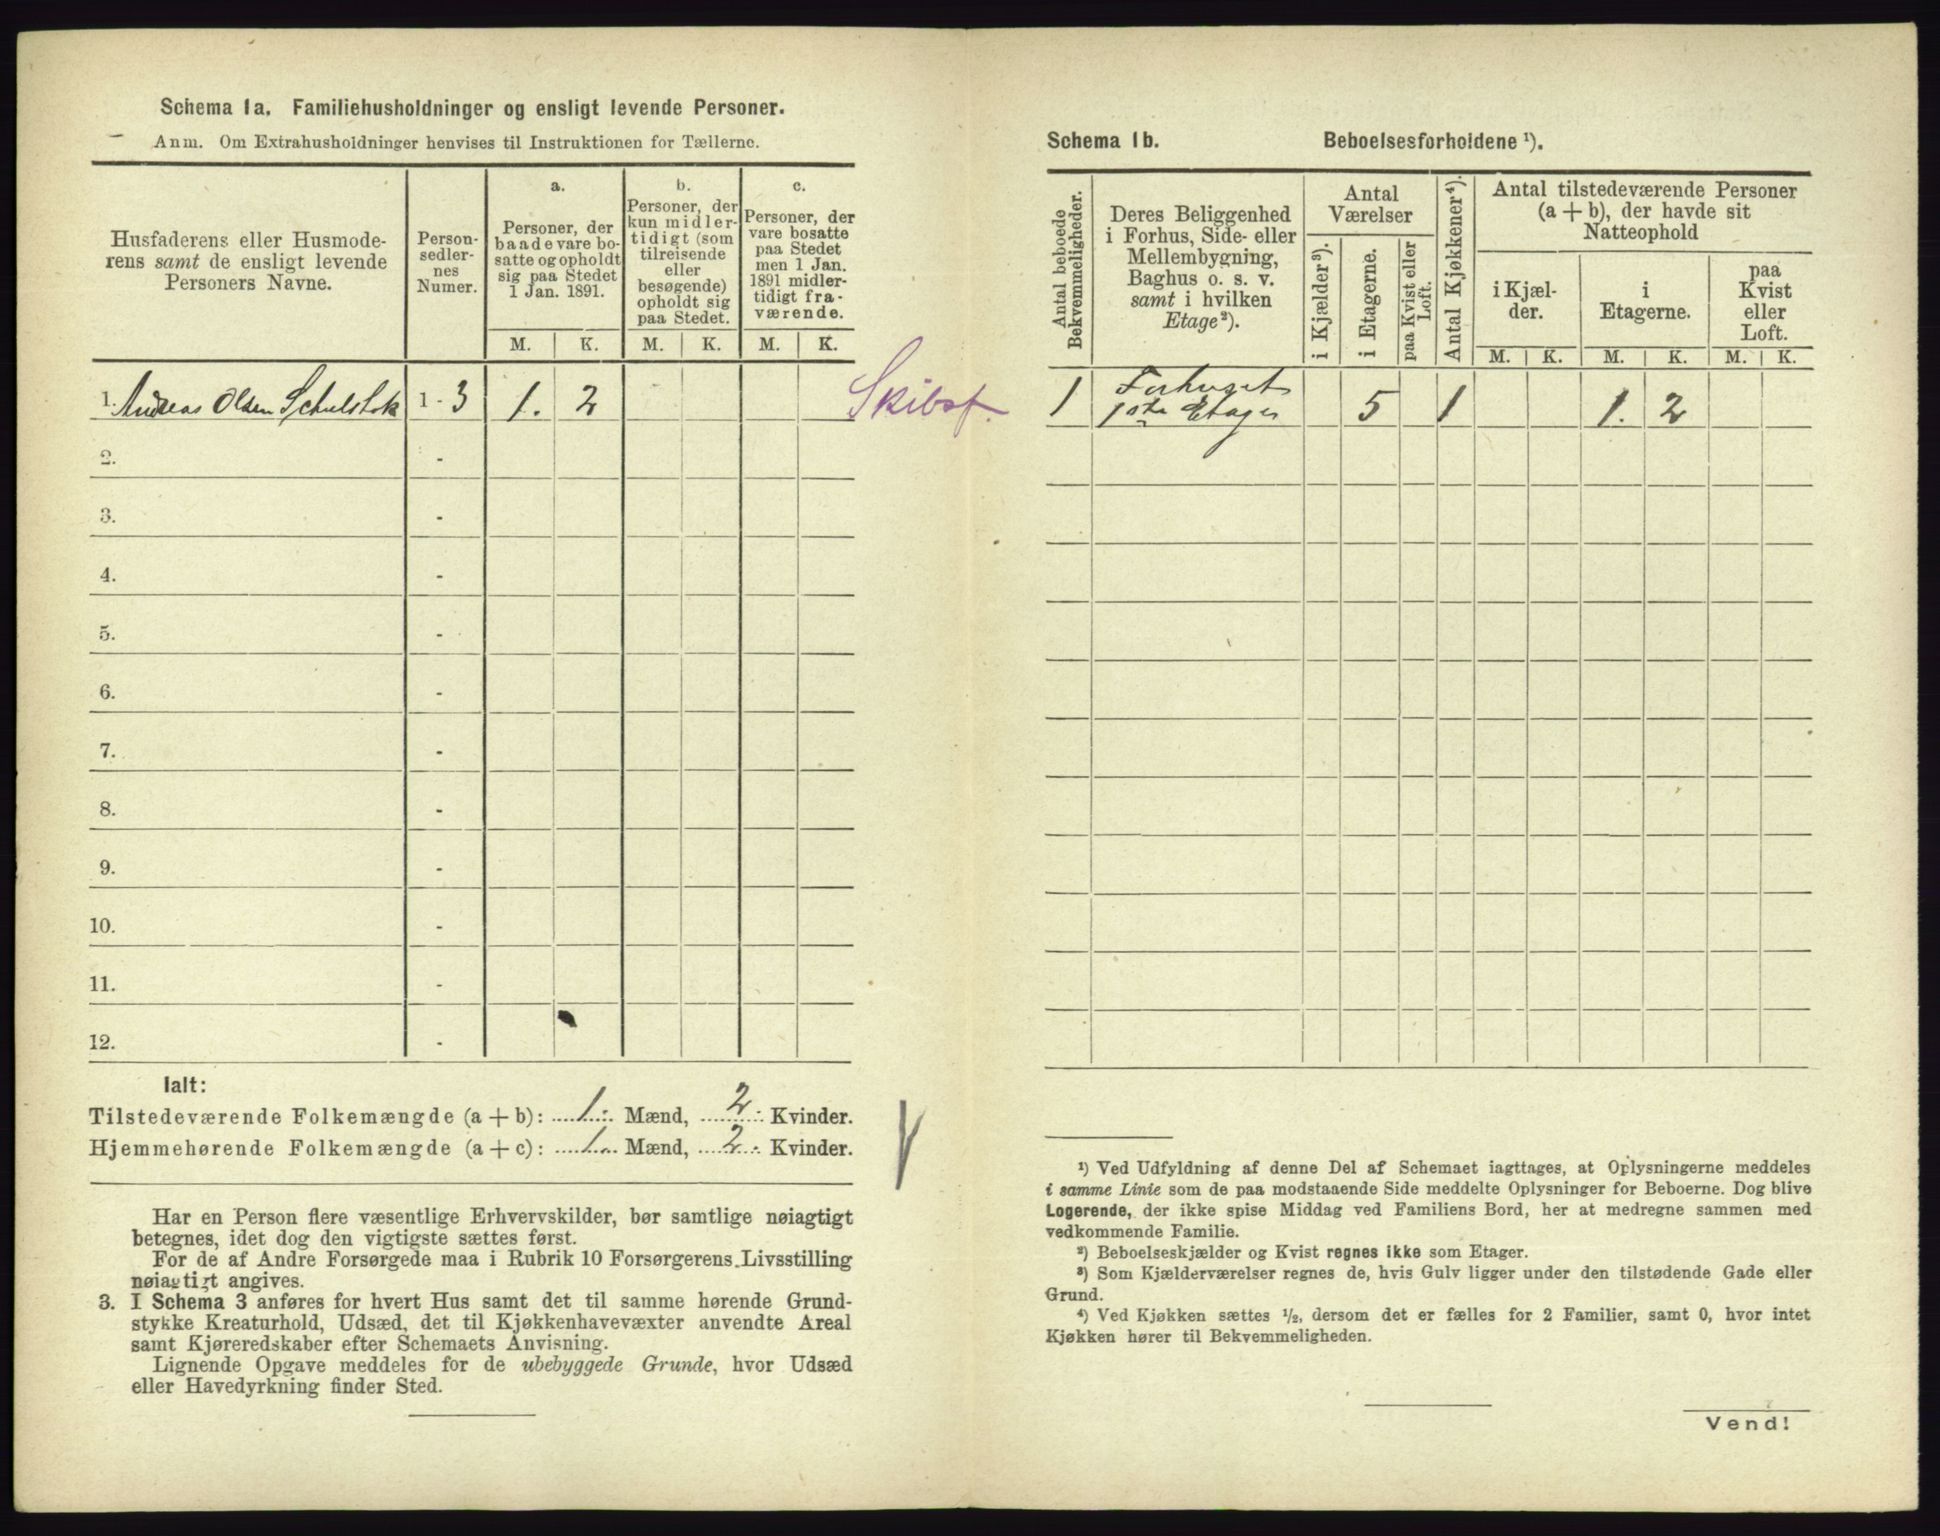 Schema 1a. Familiehusholdninger og ensligt levende Personer.
Anm. Om Extrahusholdninger henvises til Instruktionen for Tællerne.
Husfaderens eller Husmode-
rens samt de ensligt levende
Personers Navne.
Person-
sedler-
nes
Numer.
a.
Personer, der
baade vare bo-
satte og opholdt
sig paa Stedet
1 Jan. 1891.
b.
Personer, der
kun midler-
tidigt (som
tilreisende
eller
besøgende)
opholdt sig
paa Stedet.
c.
Personer, der
vare bosatte
paa Stedet
men 1 Jan.
1891 midler-
tidigt fra-
værende.
M. K. M. K. M. K.
1. Andreas Olsen 1 - 3 1. 2
Skibsf.
2. -
3. -
4. -
5. -
6. -
7. -
8. -
9. -
10. -
11. -
12. -
Ialt:
Tilstedeværende Folkemængde (a + b): 1. Mænd, 2. Kvinder.
Hjemmehørende Folkemængde (a + c): 1. Mænd, 2. Kvinder.
Har en Person flere væsentlige Erhvervskilder, bør samtlige nøiagtigt
betegnes, idet dog den vigtigste sættes først.
For de af Andre Forsørgede maa i Rubrik 10 Forsørgerens Livsstilling
nøiagtigt angives.
3. I Schema 3 anføres for hvert Hus samt det til samme hørende Grund-
stykke Kreaturhold, Udsæd, det til Kjøkkenhavevæxter anvendte Areal
samt Kjøreredskaber efter Schemaets Anvisning.
Lignende Opgave meddeles for de ubebyggede Grunde, hvor Udsæd
eller Havedyrkning finder Sted.
Schema 1b. Beboelsesforholdene ¹).
Antal beboede
Bekvemmeligheder.
Deres Beliggenhed
i Forhus, Side- eller
Mellembygning,
Baghus o. s. v.
samt i hvilken
Etage²).
Antal
Værelser
i Kjælder³).
i Etagerne.
paa Kvist eller
Loft.
Antal Kjøkkener⁴).
Antal tilstedeværende Personer
(a + b), der havde sit
Natteophold
i Kjæl-
der.
i
Etagerne.
paa
Kvist
eller
Loft.
M. K. M. K. M. K.
1 Forhuset
1ste Etager 5 1 1. 2
¹) Ved Udfyldning af denne Del af Schemaet iagttages, at Oplysningerne meddeles
i samme Linie som de paa modstaaende Side meddelte Oplysninger for Beboerne. Dog blive
Logerende, der ikke spise Middag ved Familiens Bord, her at medregne sammen med
vedkommende Familie.
²) Beboelseskjælder og Kvist regnes ikke som Etager.
³) Som Kjælderværelser regnes de, hvis Gulv ligger under den tilstødende Gade eller
Grund.
⁴) Ved Kjøkken sættes ½, dersom det er fælles for 2 Familier, samt 0, hvor intet
Kjøkken hører til Bekvemmeligheden.
Vend!